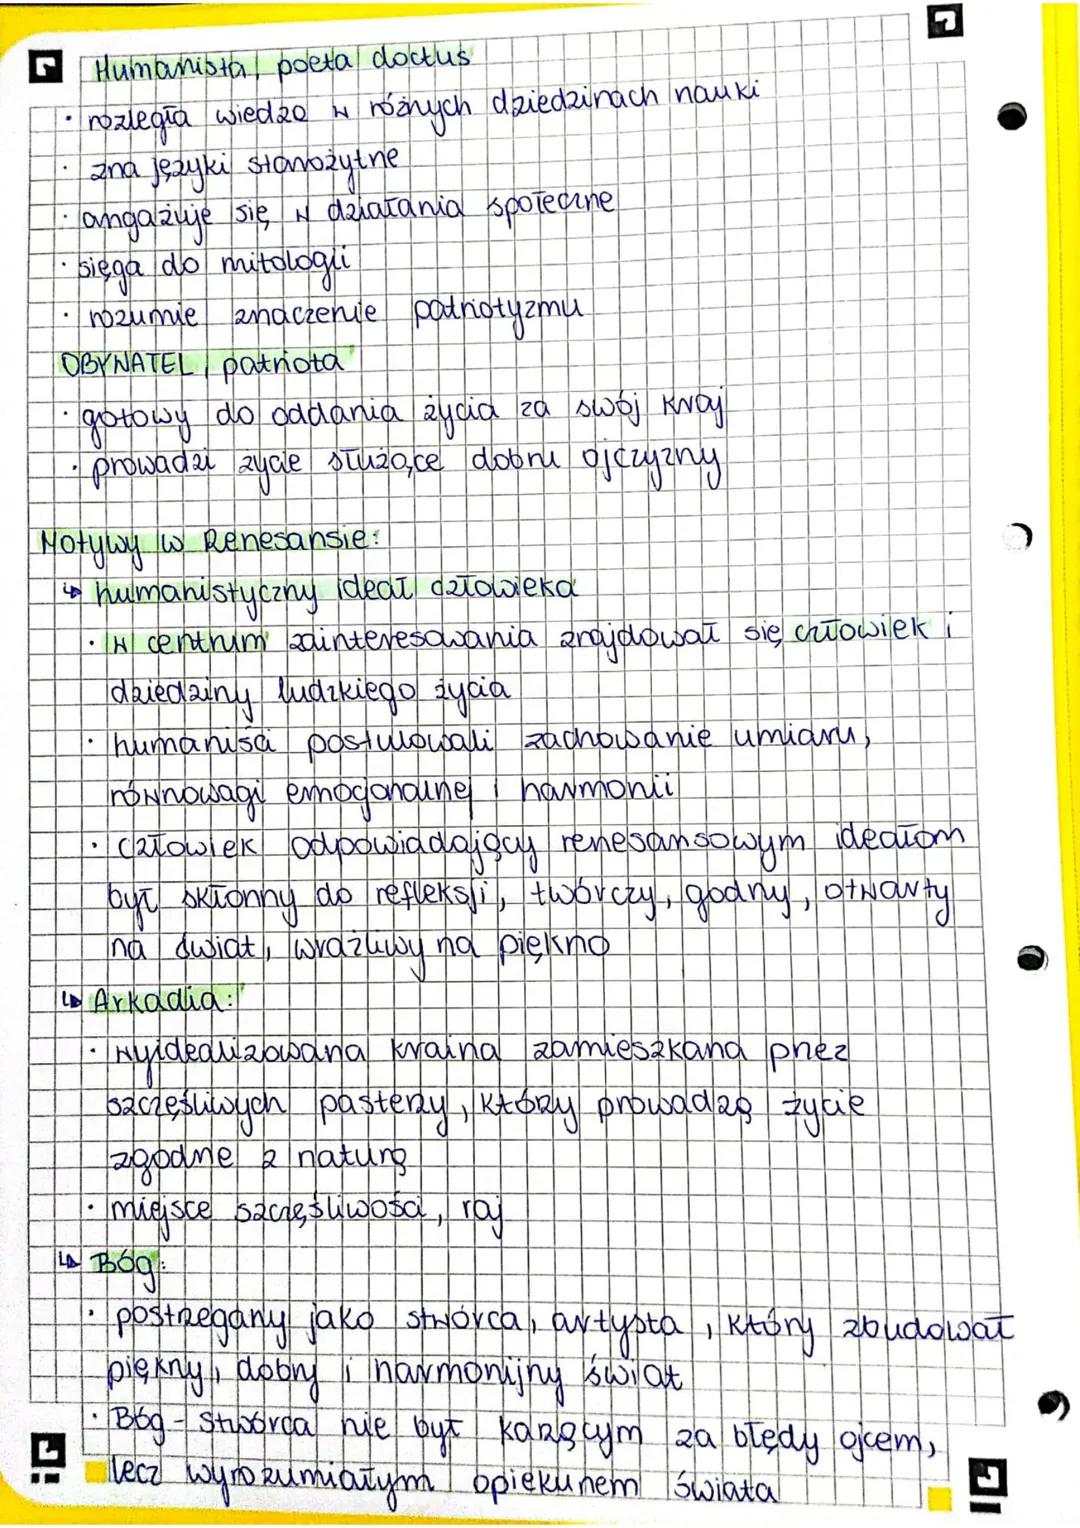 Humanista, poeta doctus
· rozległa wiedza w różnych dziedzinach nauki
· zna języki starożytne
· angażuje się w działania społeczne
· sięga do mitologii
· rozumie znaczenie patriotyzmu
OBYWATEL, patriota
· gotowy do oddania życia za swój kraj
· prowadzi życie służące dobru ojczyzny
Motywy w Renesansie:
↳ humanistyczny ideał człowieka
· w centrum zainteresowania znajdował się człowiek i
dziedziny ludzkiego życia
· humaniści postulowali zachowanie umiaru,
równowagi emocjonalnej i harmonii
· człowiek odpowiadający renesansowym ideałom
był skłonny do refleksji, twórczy, godny, otwarty
na świat, wrażliwy na piękno
↳ Arkadia:
· wyidealizowana kraina zamieszkana przez
szczęśliwych pasterzy, którzy prowadzą życie
zgodne z naturą
· miejsce szczęśliwości, raj
↳ Bóg:
· postrzegany jako stwórca, artysta, który zbudował
piękny, dobry i harmonijny świat
· Bóg - Stwórca nie był karzącym za błędy ojcem,
lecz wyrozumiałym opiekunem świata